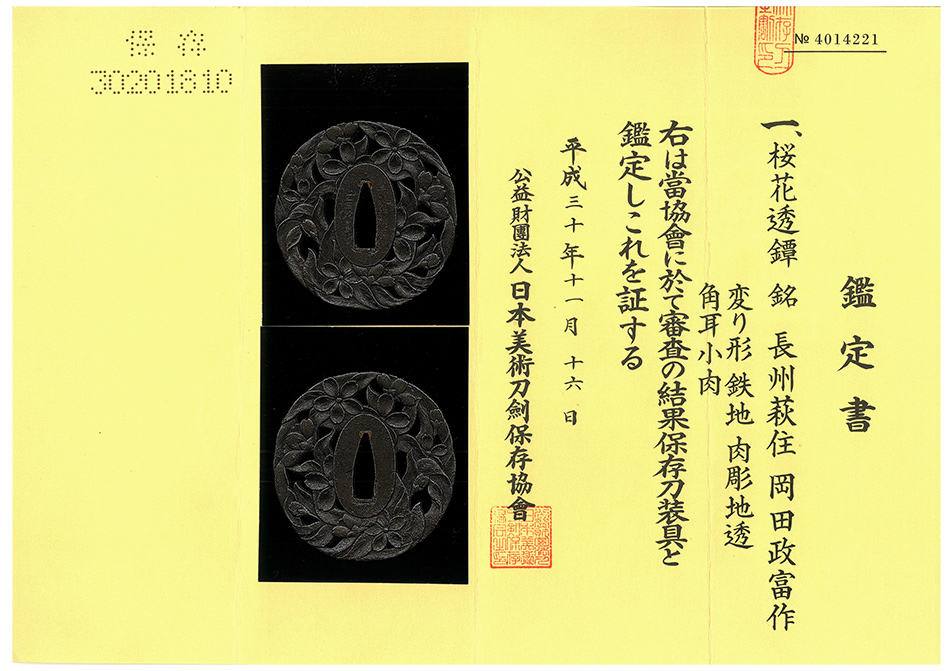 № 4014221
鑑定書
一、桜花透鐔 銘 長州萩住 岡田政富作
変り形 鉄地 肉彫地透
角耳小肉
右は當協會に於て審査の結果保存刀装具と
鑑定しこれを証する
平成三十年十一月十六日
公益財團法人 日本美術刀劍保存協會
保存
30201810